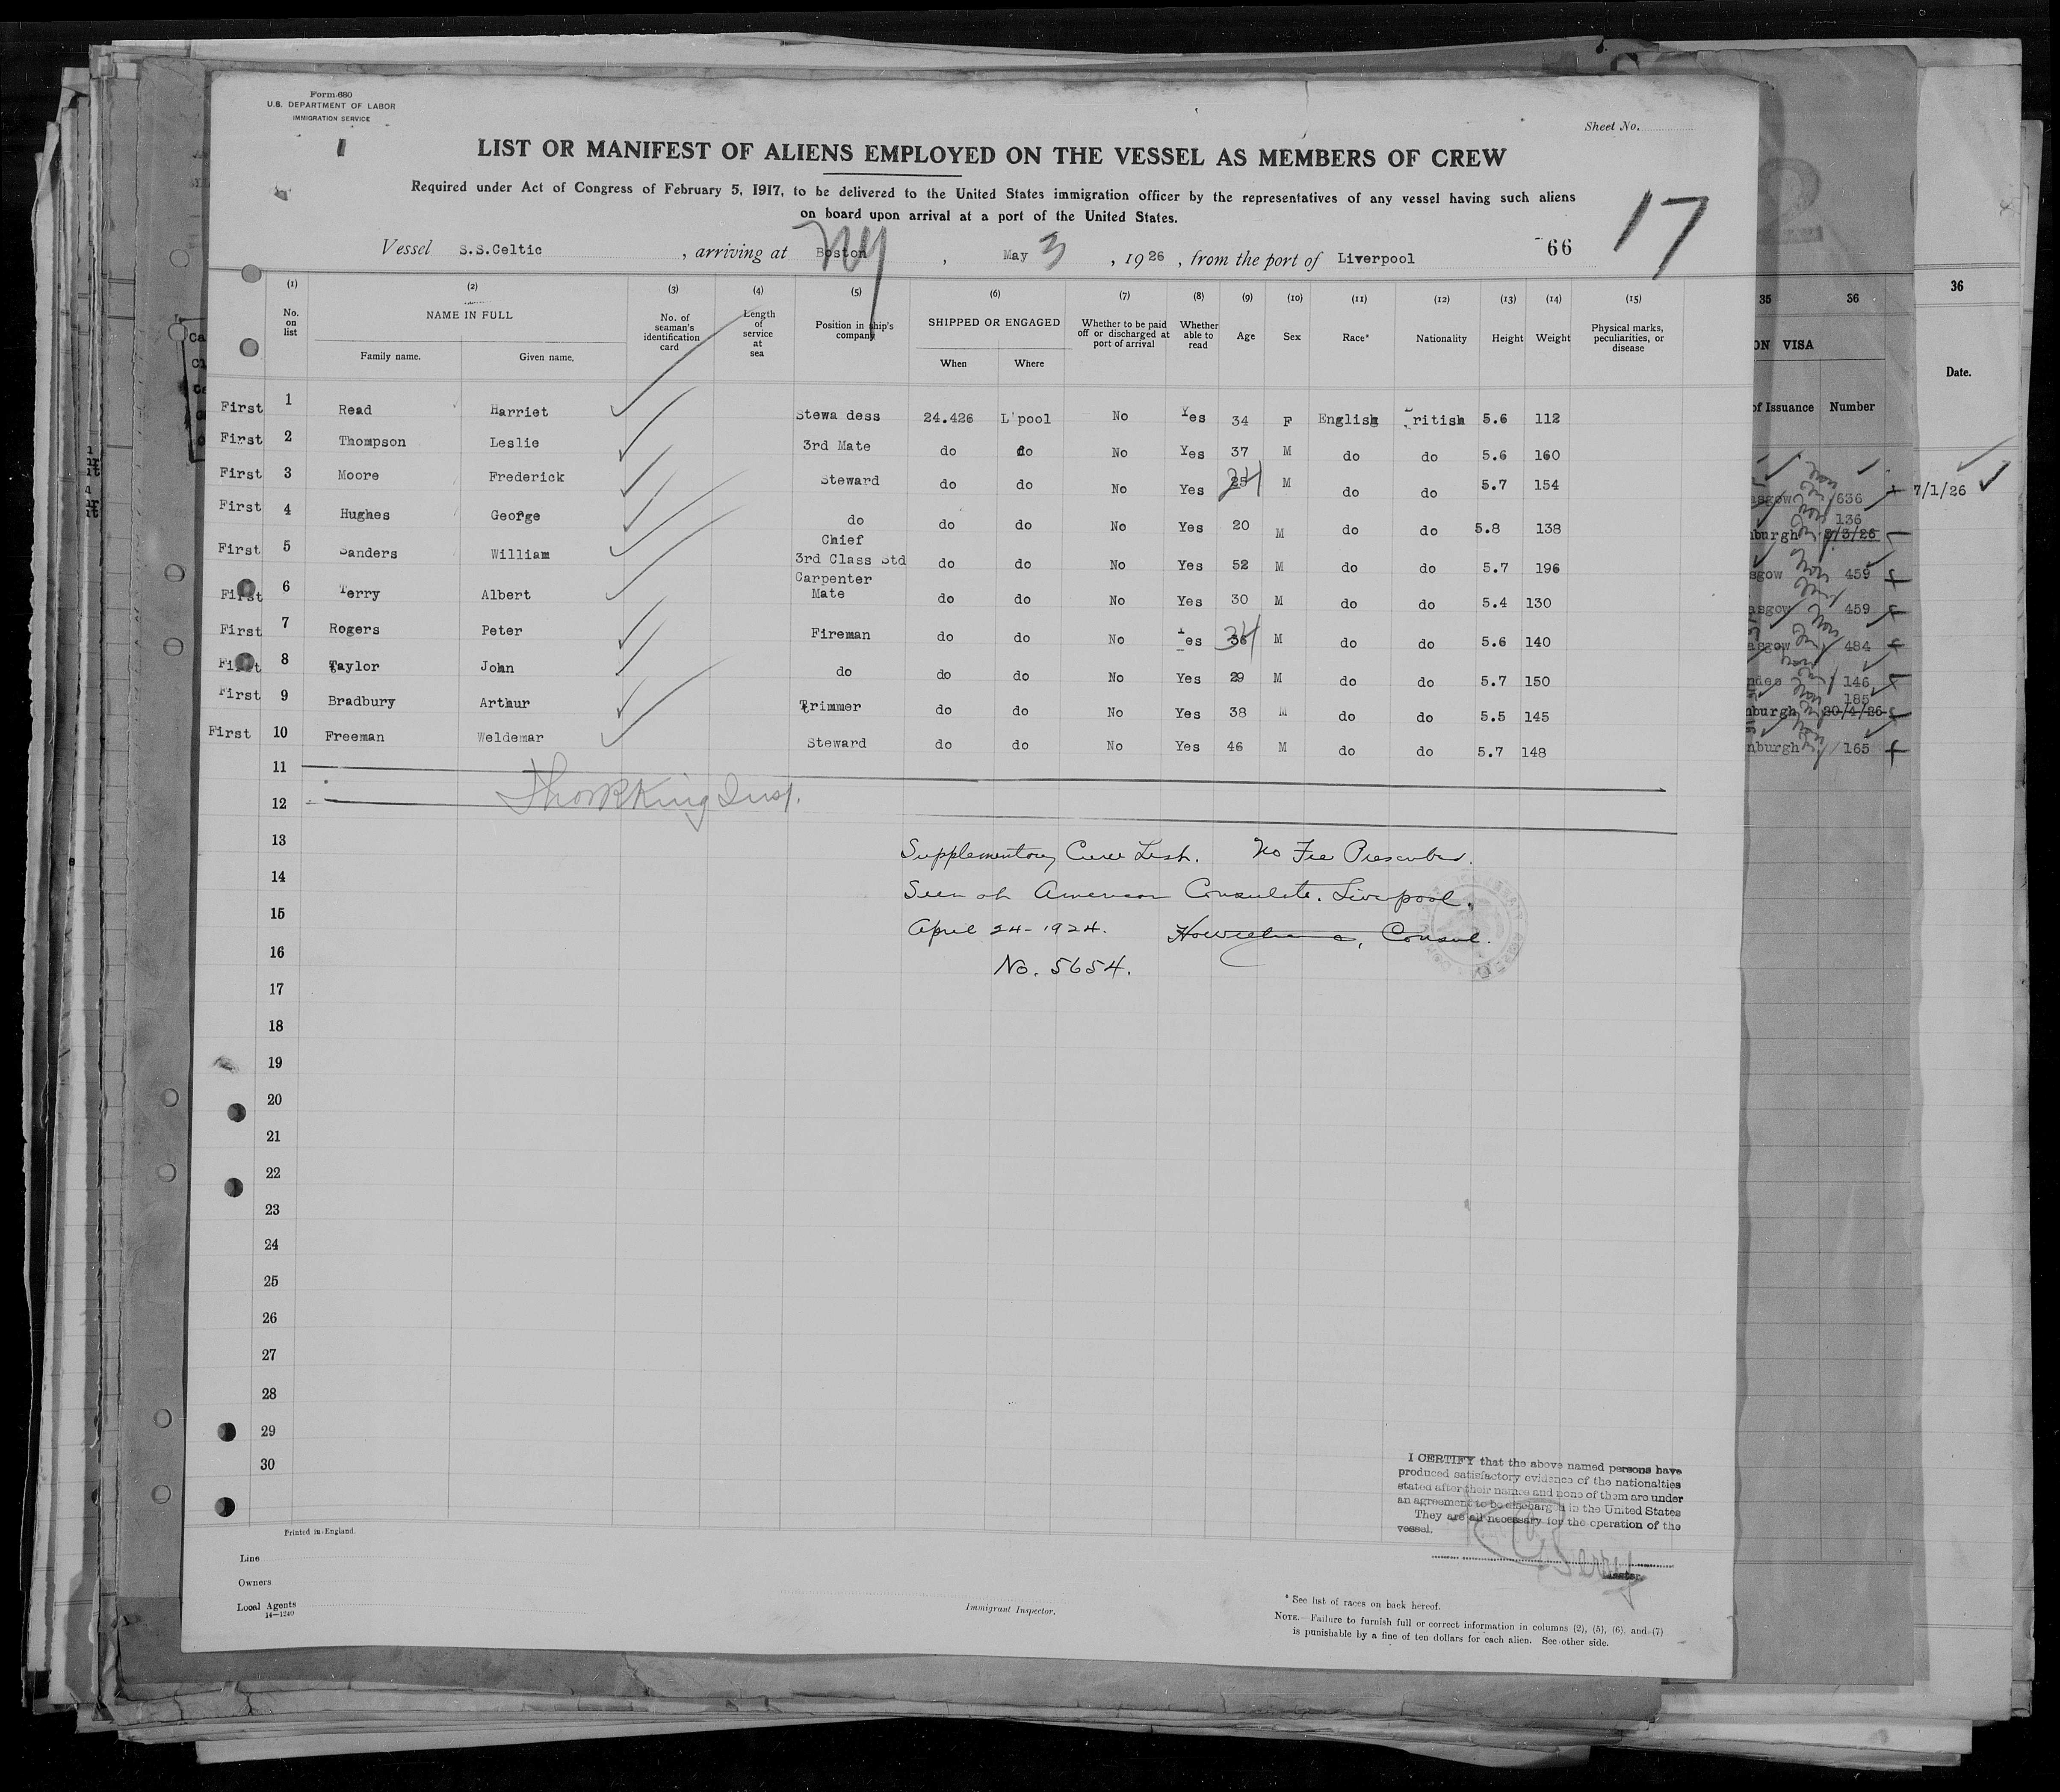 Form 680
U.S. DEPARTMENT OF LABOR
IMMIGRATION SERVICE
Sheet No.
LIST OR MANIFEST OF ALIENS EMPLOYED ON THE VESSEL AS MEMBERS OF CREW
Required under Act of Congress of February 5, 1917, to be delivered to the United States immigration officer by the representatives of any vessel having such aliens
on board upon arrival at a port of the United States.
17
Vessel S.S.Celtic , arriving at Boston NY , May 3 , 1926 , from the port of Liverpool 66
(1) (2) (3) (4) (5) (6) (7) (8) (9) (10) (11) (12) (13) (14) (15)
No. on list NAME IN FULL Family name. Given name. No. of seaman's identification card Length of service at sea Position in ship's company SHIPPED OR ENGAGED When Where Whether to be paid off or discharged at port of arrival Whether able to read Age Sex Race* Nationality Height Weight Physical marks, peculiarities, or disease
First 1 Read Harriet Stewa dess 24.426 L'pool No Yes 34 F English British 5.6 112
First 2 Thompson Leslie 3rd Mate do do No Yes 37 M do do 5.6 160
First 3 Moore Frederick Steward do do No Yes 24 M do do 5.7 154
First 4 Hughes George do do do No Yes 20 M do do 5.8 138
First 5 Sanders William Chief 3rd Class Std do do No Yes 52 M do do 5.7 196
First 6 Terry Albert Carpenter Mate do do No Yes 30 M do do 5.4 130
First 7 Rogers Peter Fireman do do No Yes 34 M do do 5.6 140
First 8 Taylor John do do do No Yes 29 M do do 5.7 150
First 9 Bradbury Arthur Trimmer do do No Yes 38 M do do 5.5 145
First 10 Freeman Weldemar Steward do do No Yes 46 M do do 5.7 148
11
12 Thos R King Insp.
13 Supplementory Crew List. No Fee Prescribed.
14 Seen at American Consulate. Liverpool.
15 April 24-1924. Consul.
16 No. 5654.
17
18
19
20
21
22
23
24
25
26
27
28
29
30
I CERTIFY that the above named persons have
produced satisfactory evidence of the nationalties
stated after their names and none of them are under
an agreement to be discharged in the United States
They are all necessary for the operation of the
vessel.
Master
Printed in England.
Line
Owners
Local Agents
14—1240
Immigrant Inspector.
* See list of races on back hereof.
NOTE.—Failure to furnish full or correct information in columns (2), (5), (6), and (7)
is punishable by a fine of ten dollars for each alien. See other side.
35 36
ON VISA
of Issuance Number
636
136
burgh 3/3/26
sgow 459
asgow 459
asgow 484
146
185
burgh 20/4/26
nburgh 165
36
Date.
7/1/26